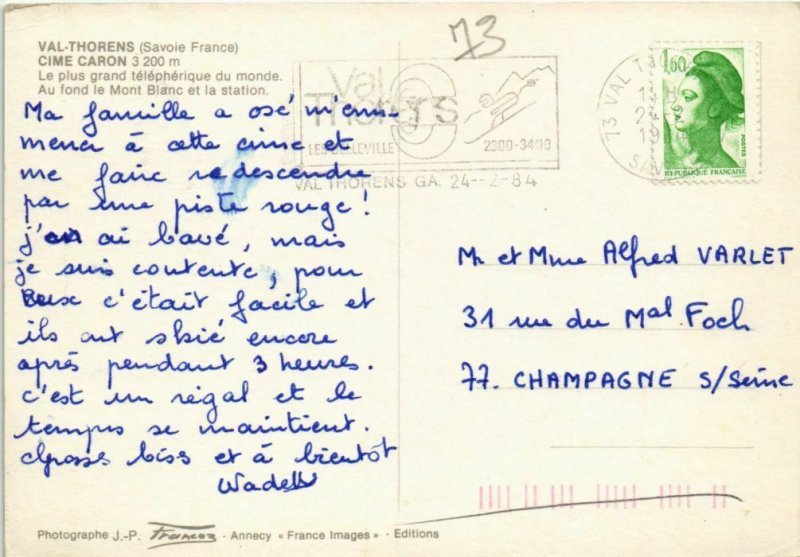 VAL-THORENS (Savoie France)
CIME CARON 3 200 m
Le plus grand téléphérique du monde.
Au fond le Mont Blanc et la station.
73
Val
Thorens
LES BELLEVILLE
2300-3400
VAL THORENS GA. 24--2-84
73 VAL T
1,60
POSTES
REPUBLIQUE FRANÇAISE
Ma famille a osé m'em-
mener à cette cime et
me faire redescendre
par une piste rouge !
j'en ai bavé, mais
je suis contente, pour
eux c'était facile et
ils ont skié encore
après pendant 3 heures.
c'est un régal et le
temps se maintient.
Grosses bises et à bientôt
Mr et Mme Alfred VARLET
31 rue du Mal Foch
77. CHAMPAGNE S/Seine
Photographe J.-P. Francoz - Annecy « France Images » - Editions